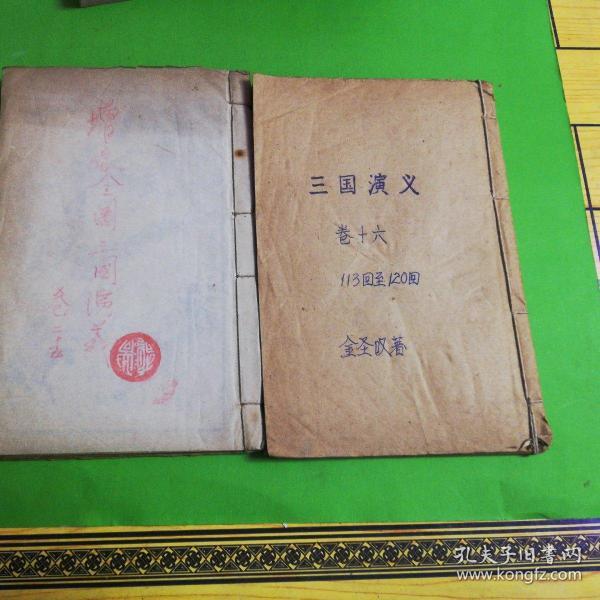 增像全图三国演义
三国演义
卷十六
113回至120回
金圣叹著
孔夫子旧书网
www.kongfz.com